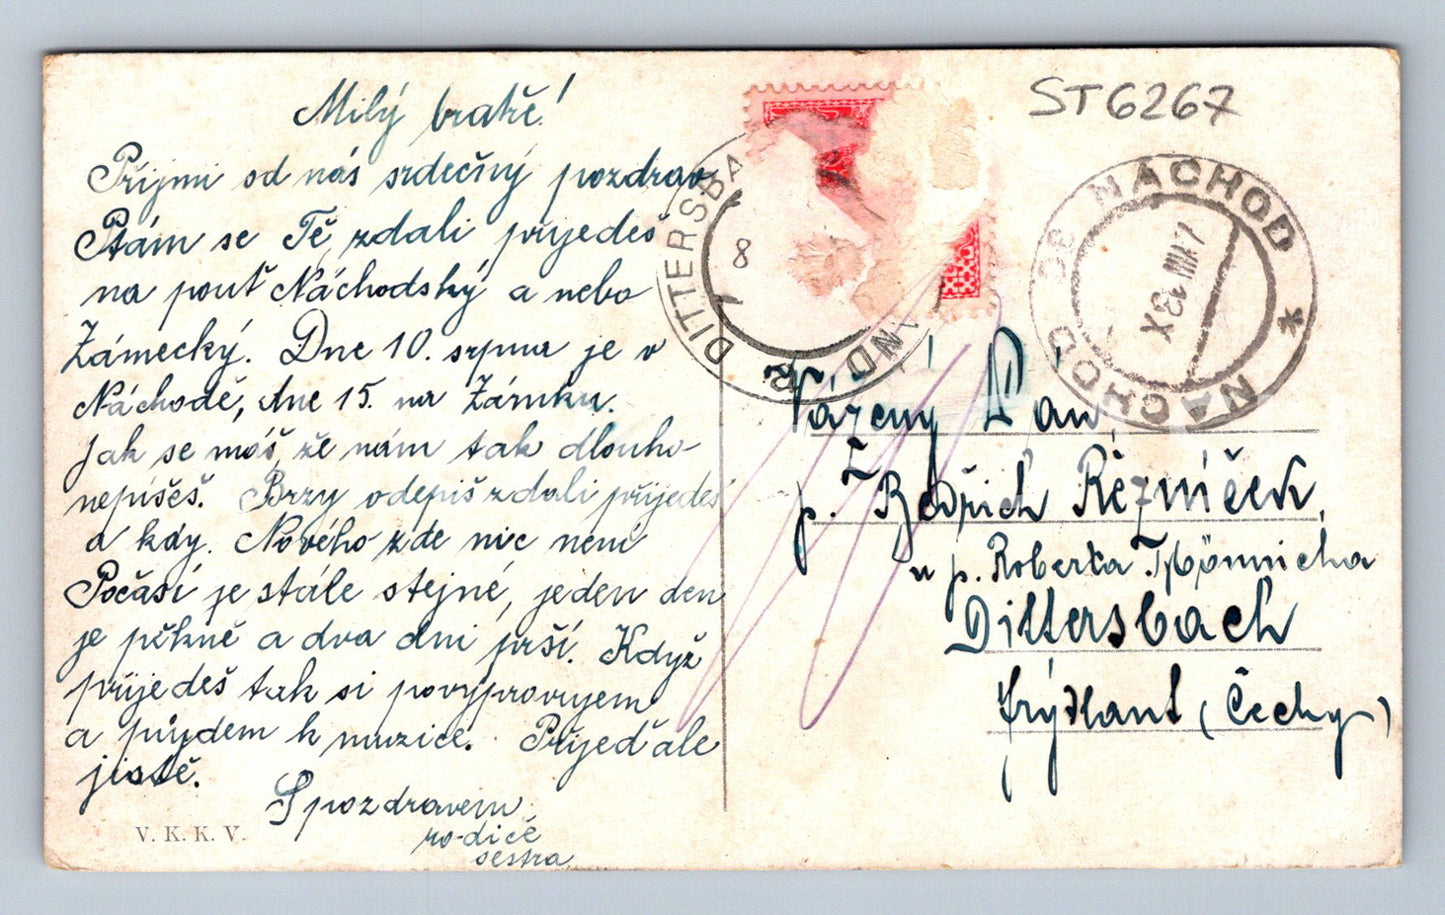 Milý bratře!
Přijmi od nás srdečný pozdrav
Ptám se Tě zdali přijedeš
na pouť Náchodský a nebo
Zámecký. Dne 10. srpna je v
Náchodě, dne 15. na Zámku.
jak se máš že nám tak dlouho-
nepíšeš. Brzy odepiš zdali přijedeš
a kdy. Nového zde nic není
Počasí je stále stejné, jeden den
je pěkně a dva dni prší. Když
přijedeš tak si povyprovujem
a půjdem k muzice. Přijeď ale
jistě.
S pozdravem
rodiče
sestra
V. K. K. V.
ST6267
DITTERSBA
8
R ND
NÁCHOD
NACHOD
7 VIII 13 X
Vážený Pán
p. Bedřich Řezníček
u p. Roberta
Dittersbach
Frýdlant (Čechy)